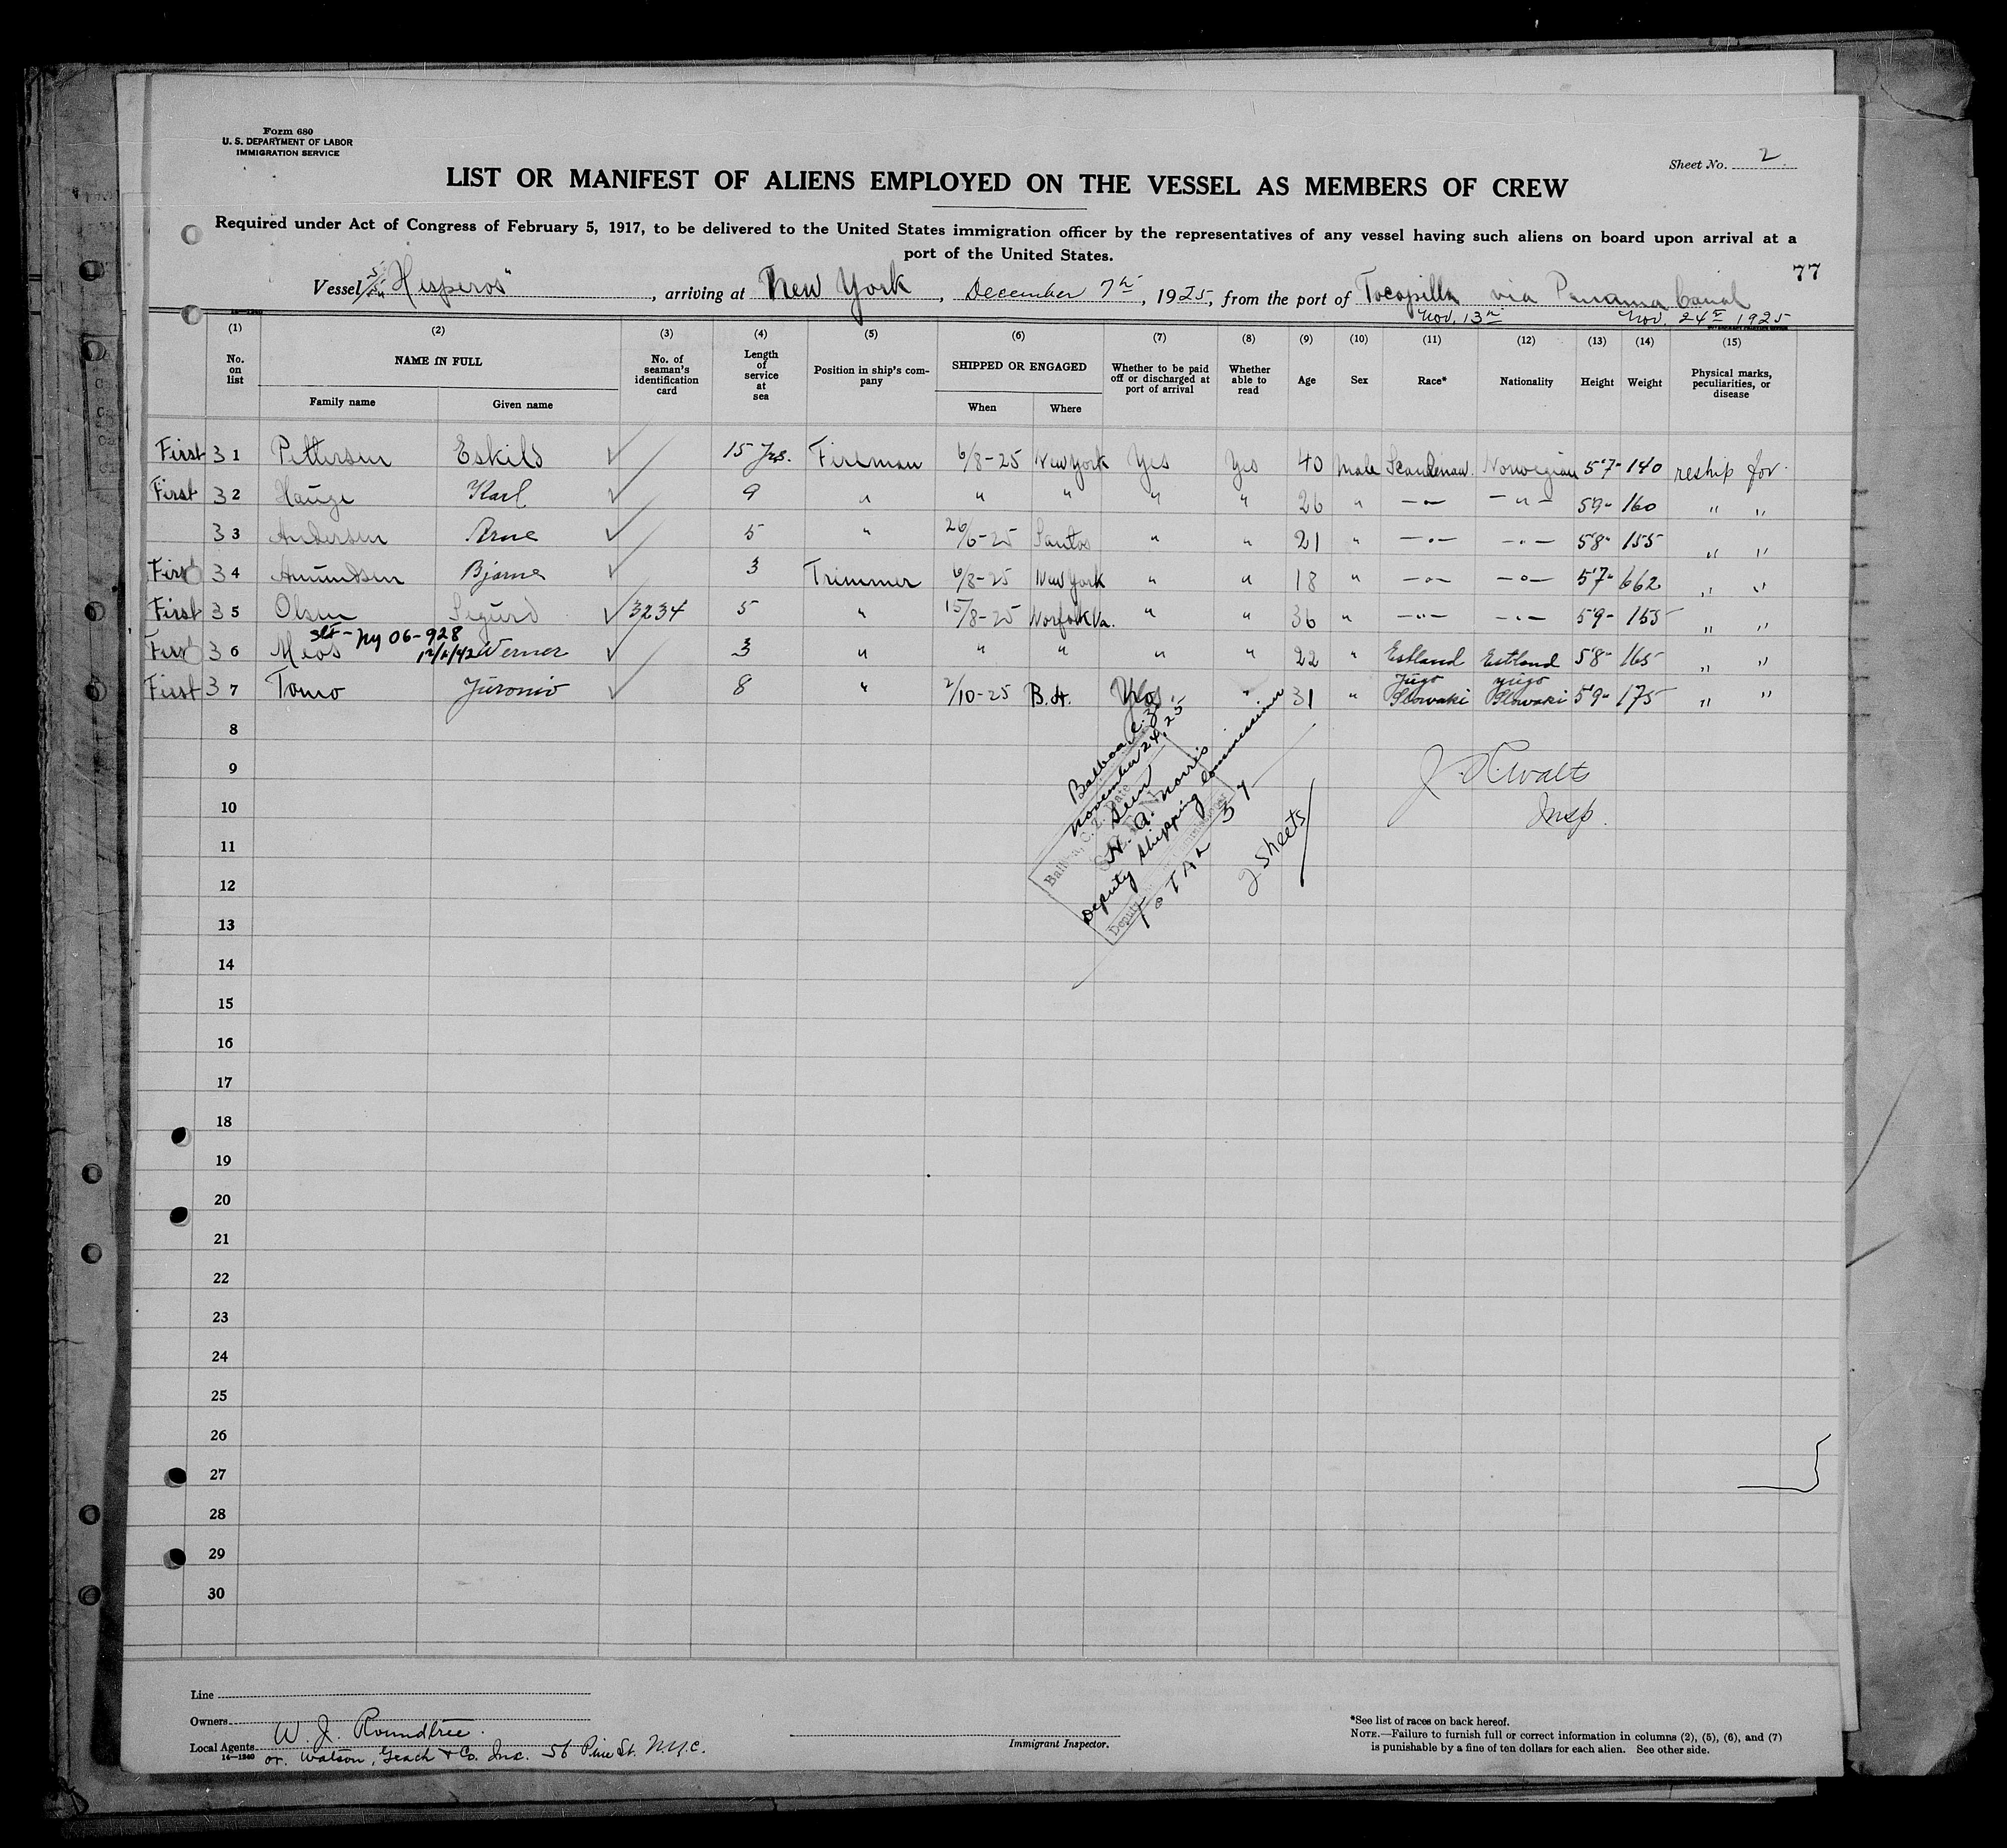 Form 680
U. S. DEPARTMENT OF LABOR
IMMIGRATION SERVICE
Sheet No. 2
LIST OR MANIFEST OF ALIENS EMPLOYED ON THE VESSEL AS MEMBERS OF CREW
Required under Act of Congress of February 5, 1917, to be delivered to the United States immigration officer by the representatives of any vessel having such aliens on board upon arrival at a
port of the United States.
77
Vessel S/S "Hesperos", arriving at New York, December 7th, 1925, from the port of Tocopilla via Panama Canal
Nov. 13th Nov. 24th 1925
(1) (2) (3) (4) (5) (6) (7) (8) (9) (10) (11) (12) (13) (14) (15)
No. on list
NAME IN FULL
Family name
Given name
No. of seaman's identification card
Length of service at sea
Position in ship's company
SHIPPED OR ENGAGED
When
Where
Whether to be paid off or discharged at port of arrival
Whether able to read
Age
Sex
Race*
Nationality
Height
Weight
Physical marks, peculiarities, or disease
First 31 Pettersen Eskild ✓ 15 Yrs. Fireman 6/8-25 New York Yes Yes 40 Male Scandinav. Norwegian 5'7" 140 reship for
First 32 Hauge Karl ✓ 9 " " " " " 26 " —"— —"— 5'9" 160 " "
33 Andersen Arne ✓ 5 " 26/6-25 Santos " " 21 " —"— —"— 5'8" 155 " "
First 34 Amundsen Bjarne ✓ 3 Trimmer 6/8-25 New York " " 18 " —"— —"— 5'7" 662 " "
First 35 Olsen Sigurd ✓ 3234 5 " 15/8-25 Norfolk Va. " " 36 " —"— —"— 5'9" 155 " "
ny 06-928
First 36 Meos Werner ✓ 3 " " " " " 22 " Estland Estland 5'8" 165 " "
First 37 Tomo Juronio ✓ 8 " 2/10-25 B.A. " 31 " Jugo Slowaki Yugo Slowaki 5'9" 175 " "
8
9
10
11
12
13
14
15
16
17
18
19
20
21
22
23
24
25
26
27
28
29
30
Balboa C.Z.
November 24, 25
Seen
H. A. Norris
Deputy Shipping Commissioner
Total 37
2 sheets
Insp.
Line
Owners
W. J. Roundtree.
Local Agents
16—1240
or. Watson, Geach & Co. Inc. 56 Pine St. N.Y.C.
Immigrant Inspector.
*See list of races on back hereof.
NOTE.—Failure to furnish full or correct information in columns (2), (5), (6), and (7)
is punishable by a fine of ten dollars for each alien. See other side.